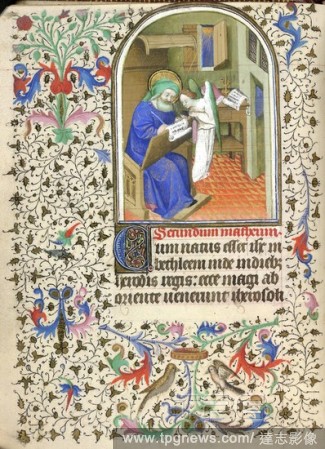 Secundum matheum
Cum natus esset ihs in
bethleem iude in dieb
herodis regis: ecce magi ab
oriente venerunt iherosoli
www.tpgnews.com/達志影像